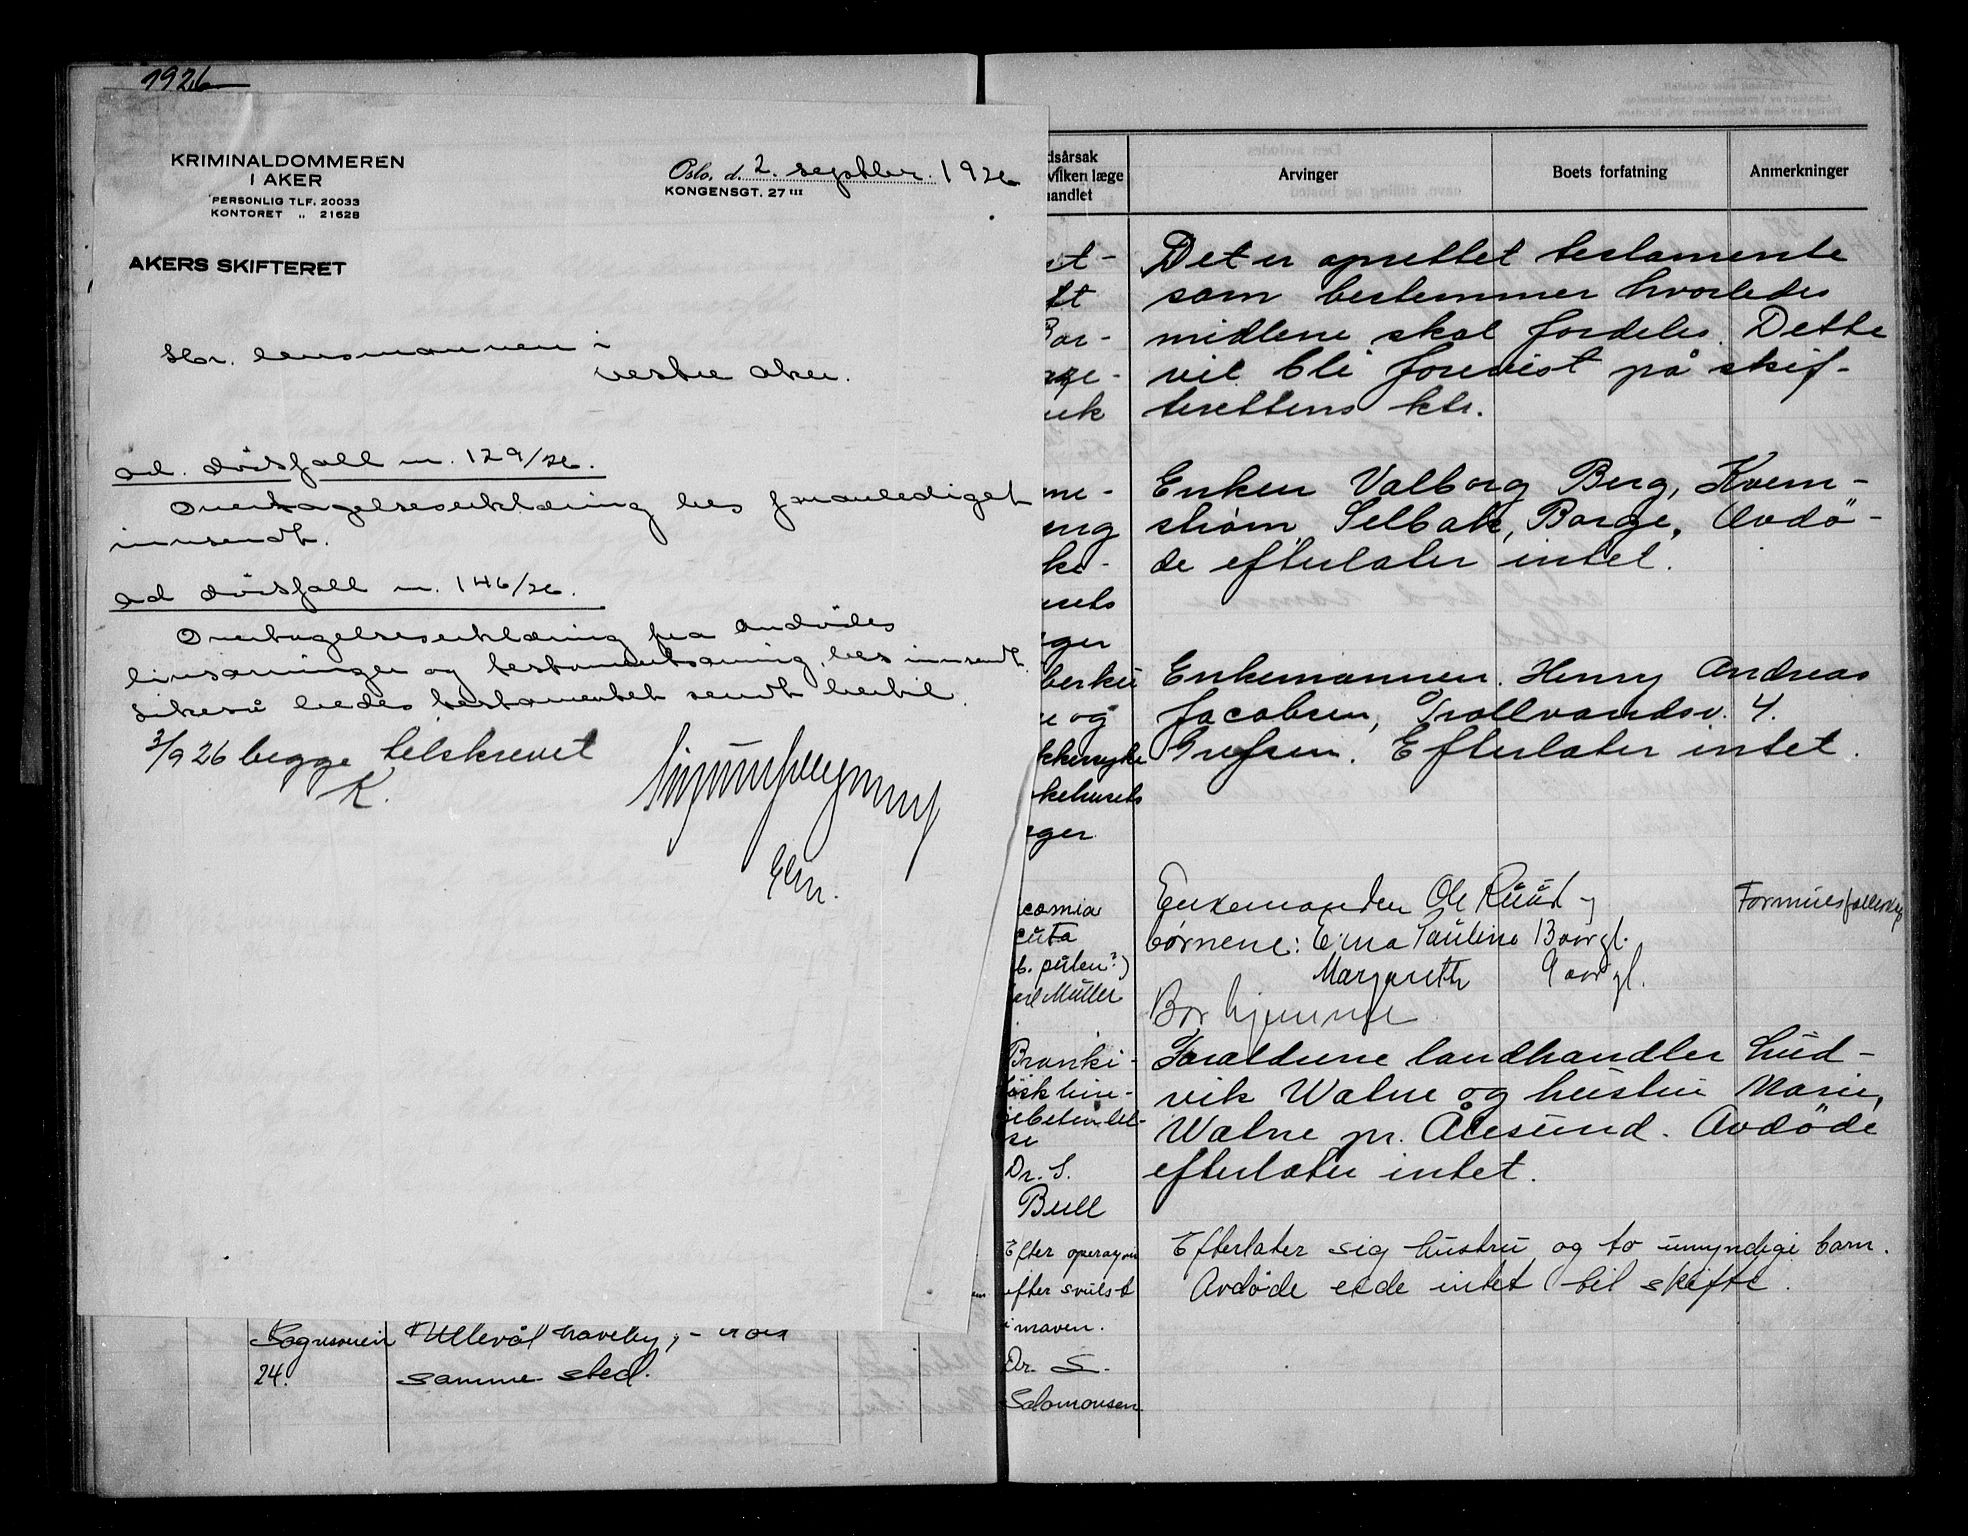 1926
KRIMINALDOMMEREN
I AKER
PERSONLIG TLF. 20033
KONTORET „ 21628
Oslo, d. 2. septbr. 1926
KONGENSGT. 27 III
AKERS SKIFTERET
Hr. lensmannen i
vestre Aker.
ad. dødsfall nr. 129/26.
Overtagelseserklæring bes foranlediget
innsendt.
ad dødsfall nr. 146/26.
Overtagelseserklæring fra avdødes
livsarvinger og testamentsarving, bes innsendt.
Likeså bedes testamentet sendt hertil.
3/9 26 begge tilskrevet
K.
Sognsveien
24.
Ullevål haveby, -
samme sted.
dsårsak
hvilken læge
handlet
Arvinger
Boets forfatning
Anmerkninger
Det er oprettet testamente
som bestemmer hvorledes
midlene skal fordeles. Dette
vil bli forevist på skif-
terettens ktr.
Enken Valborg Berg, Kvern-
strøm Selbak, Borge. Avdö-
de efterlater intet.
Enkemannen Henry Andreas
Jacobsen, Trollvandsv. 4.
Grefsen. Efterlater intet.
berku
og
kehusets
ger
Enkemanden Ole Ruud og
børnene: Erna Pauline 13 aar gl.
Margareth 9 aar gl.
Bor hjemme
Formuesfællesskap
cuta
Müller
Foreldrene landhandler Lud-
vik Watne og hustru Marie,
Watne pr. Ålesund. Avdöde
efterlater intet.
Bronki-
Dr. S.
Bull
Efterlater sig hustru og to umyndige barn.
Avdøde eide intet til skifte.
Efter operasjon
efter svulst
i maven.
Dr. S.
Salomonsen